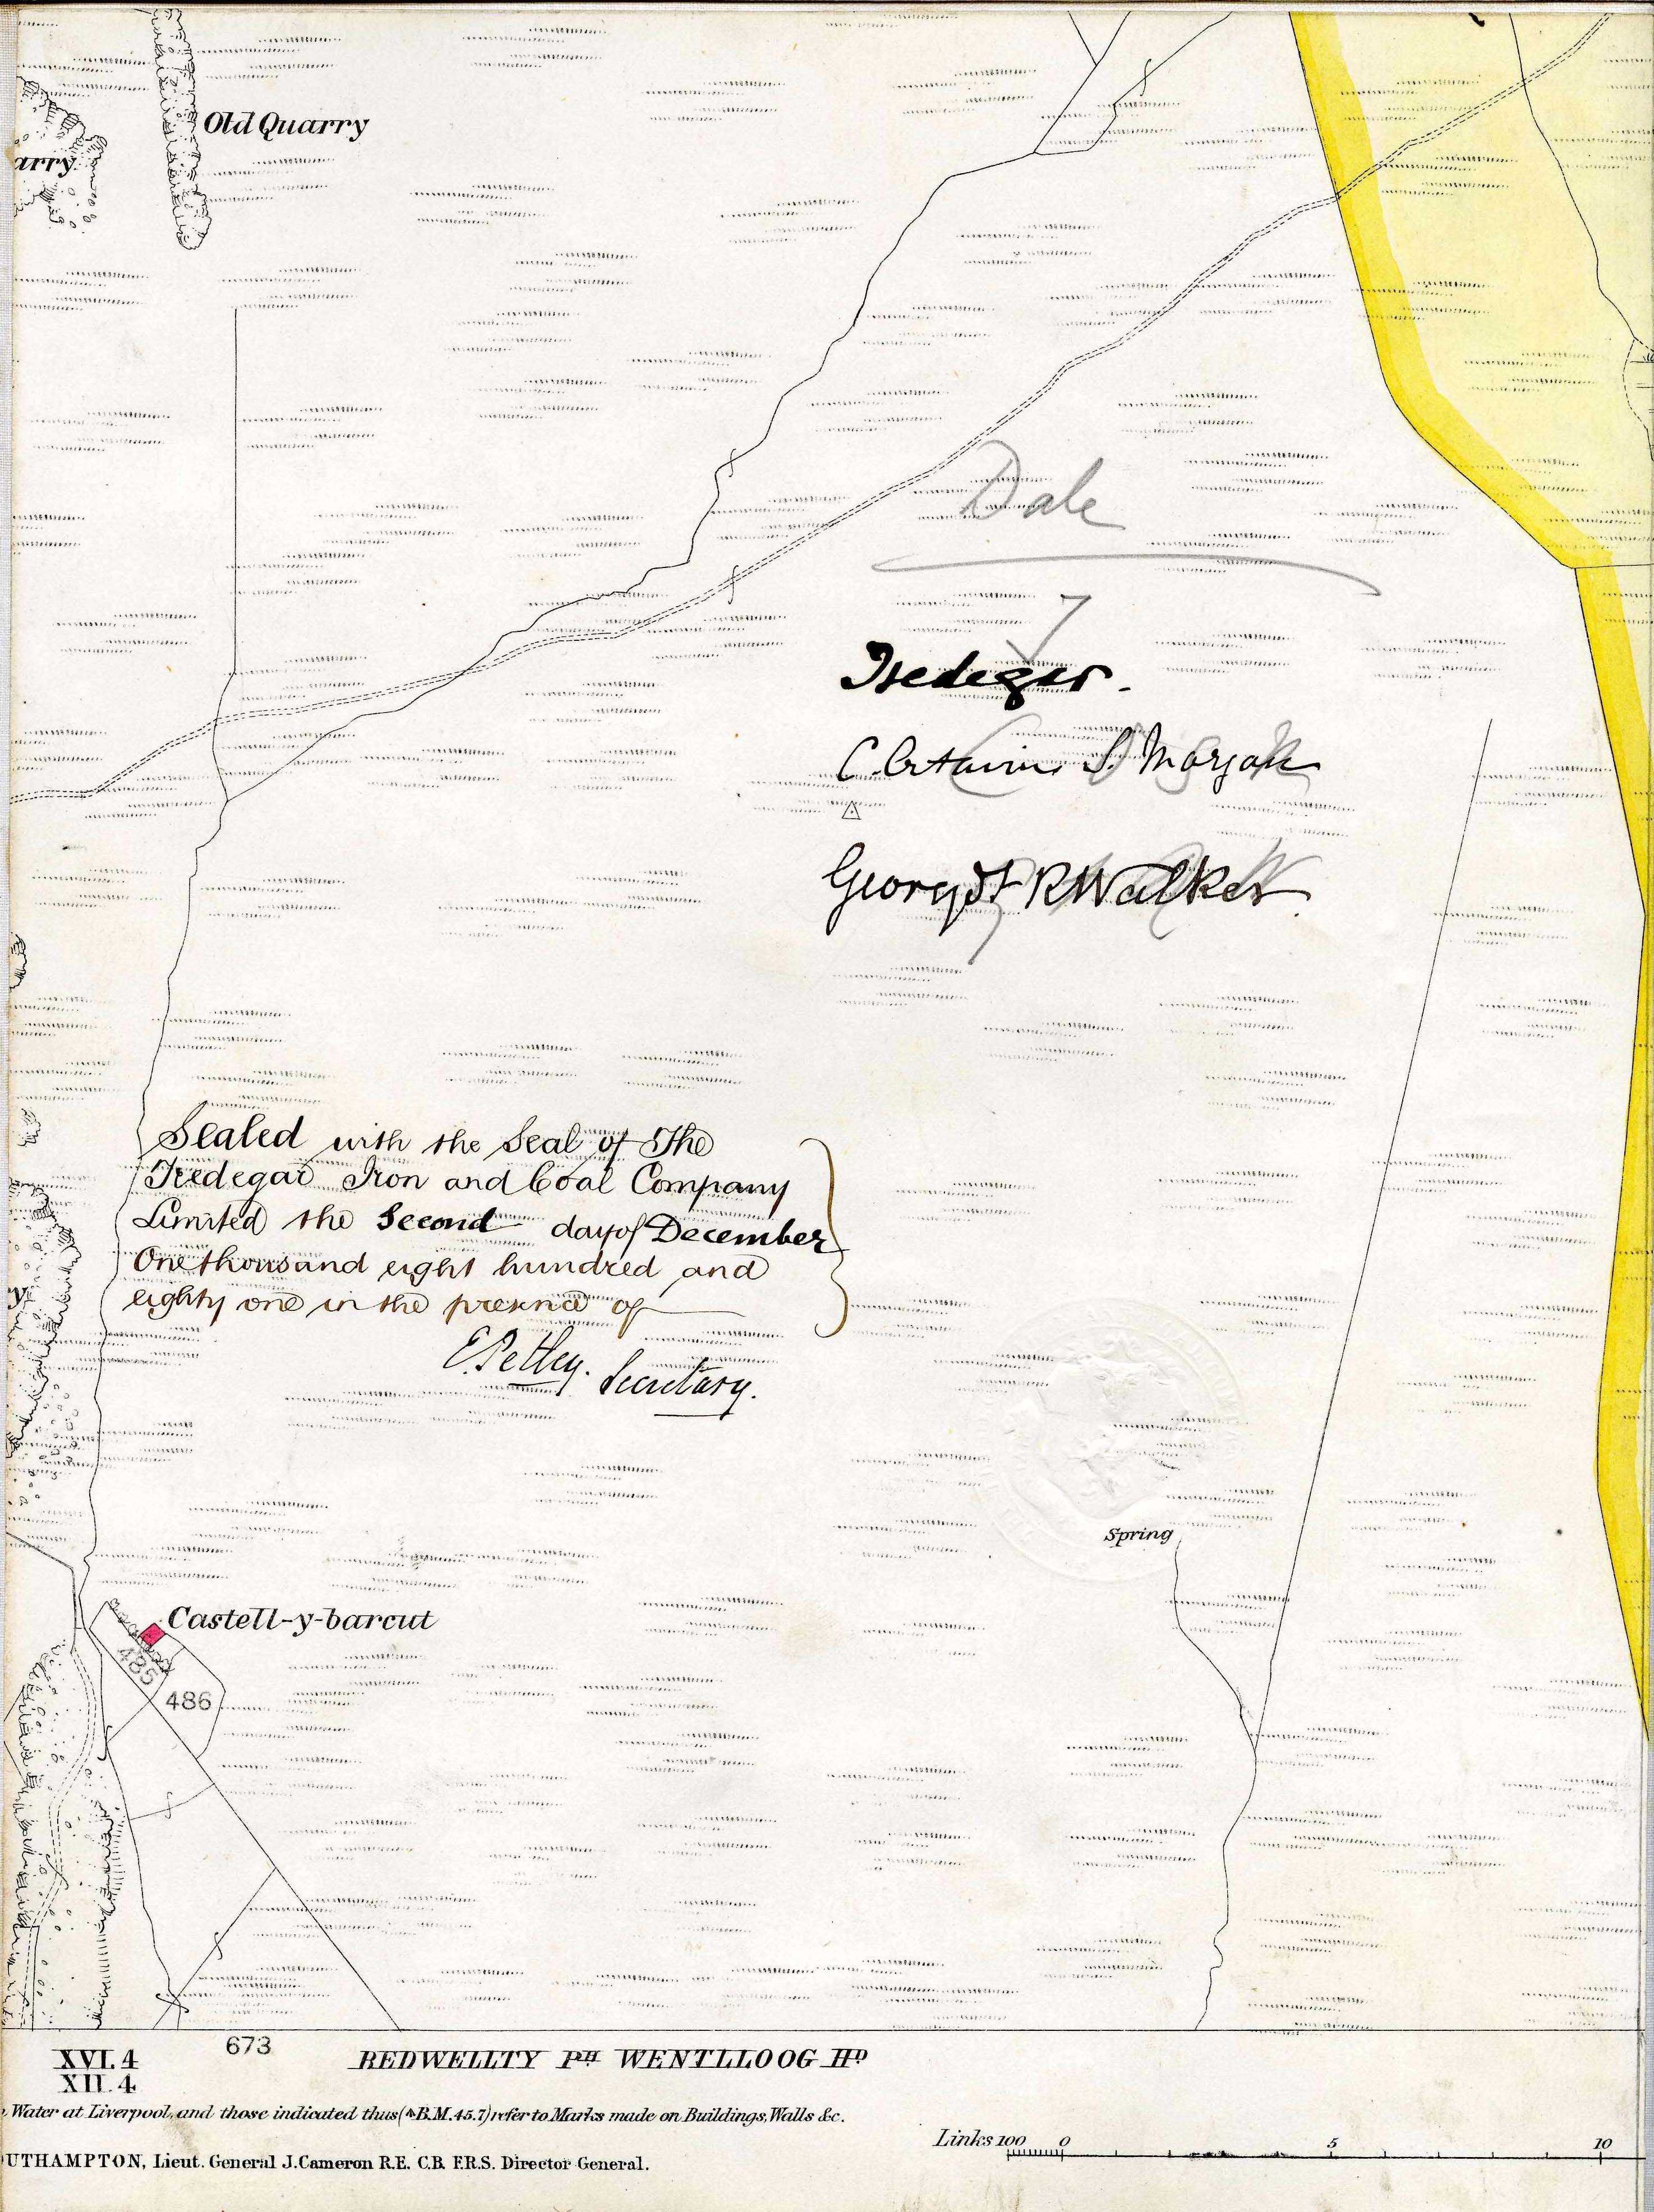 Old Quarry
arry
Dale
Tredegar.
C. Octavius S. Morgan
George F R Walker
Sealed with the Seal of The
Tredegar Iron and Coal Company
Limited the Second day of December
One thousand eight hundred and
eighty one in the presence of
E. Petley. Secretary.
y
Spring
Castell-y-barcut
485
486
673
XVI. 4
XII. 4
BEDWELLTY PH WENTLLOOG HD
Water at Liverpool, and those indicated thus (B.M. 45.7) refer to Marks made on Buildings, Walls &c.
Links 100 0 5 10
UTHAMPTON, Lieut. General J. Cameron R.E. C.B. F.R.S. Director General.